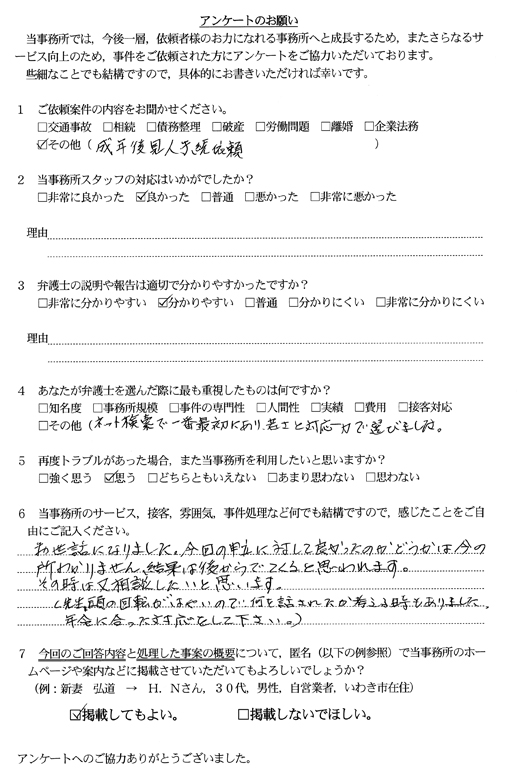 アンケートのお願い
当事務所では，今後一層，依頼者様のお力になれる事務所へと成長するため，またさらなるサ
ービス向上のため，事件をご依頼された方にアンケートをご協力いただいております。
些細なことでも結構ですので，具体的にお書きいただければ幸いです。
1 ご依頼案件の内容をお聞かせください。
□交通事故 □相続 □債務整理 □破産 □労働問題 □離婚 □企業法務
☑その他（成年後見人手続依頼）
2 当事務所スタッフの対応はいかがでしたか？
□非常に良かった ☑良かった □普通 □悪かった □非常に悪かった
理由
3 弁護士の説明や報告は適切で分かりやすかったですか？
□非常に分かりやすい ☑分かりやすい □普通 □分かりにくい □非常に分かりにくい
理由
4 あなたが弁護士を選んだ際に最も重視したものは何ですか？
□知名度 □事務所規模 □事件の専門性 □人間性 □実績 □費用 □接客対応
□その他（ネット検索で一番最初にあり、若さと対応力で選びました。
5 再度トラブルがあった場合，また当事務所を利用したいと思いますか？
□強く思う ☑思う □どちらともいえない □あまり思わない □思わない
6 当事務所のサービス，接客，雰囲気，事件処理など何でも結構ですので，感じたことをご自
由にご記入ください。
お世話になりました。今回の申立に対して良かったのかどうかは今の
所わかりません、結果は後からでてくると思われます。
その時は又相談したいと思います。
（先生、頭の回転がはやいので何を話されたか考える時もありました、
年令に合った対応をして下さい。）
7 今回のご回答内容と処理した事案の概要について，匿名（以下の例参照）で当事務所のホー
ムページや案内などに掲載させていただいてもよろしいでしょうか？
（例：新妻 弘道 → H．Nさん，30代，男性，自営業者，いわき市在住）
☑掲載してもよい。 □掲載しないでほしい。
アンケートへのご協力ありがとうございました。